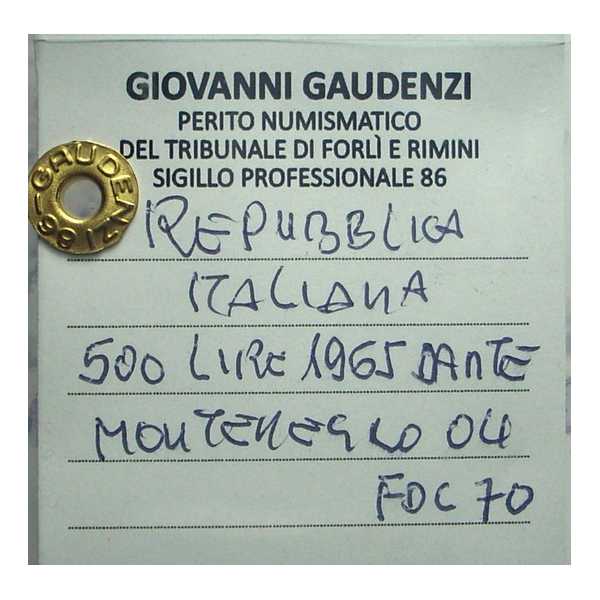 GIOVANNI GAUDENZI
PERITO NUMISMATICO
DEL TRIBUNALE DI FORLÌ E RIMINI
SIGILLO PROFESSIONALE 86
GAUDENZI 86
REPUBBLICA
ITALIANA
500 LIRE 1965 DANTE
MONTENEGRO 04
FDC 70